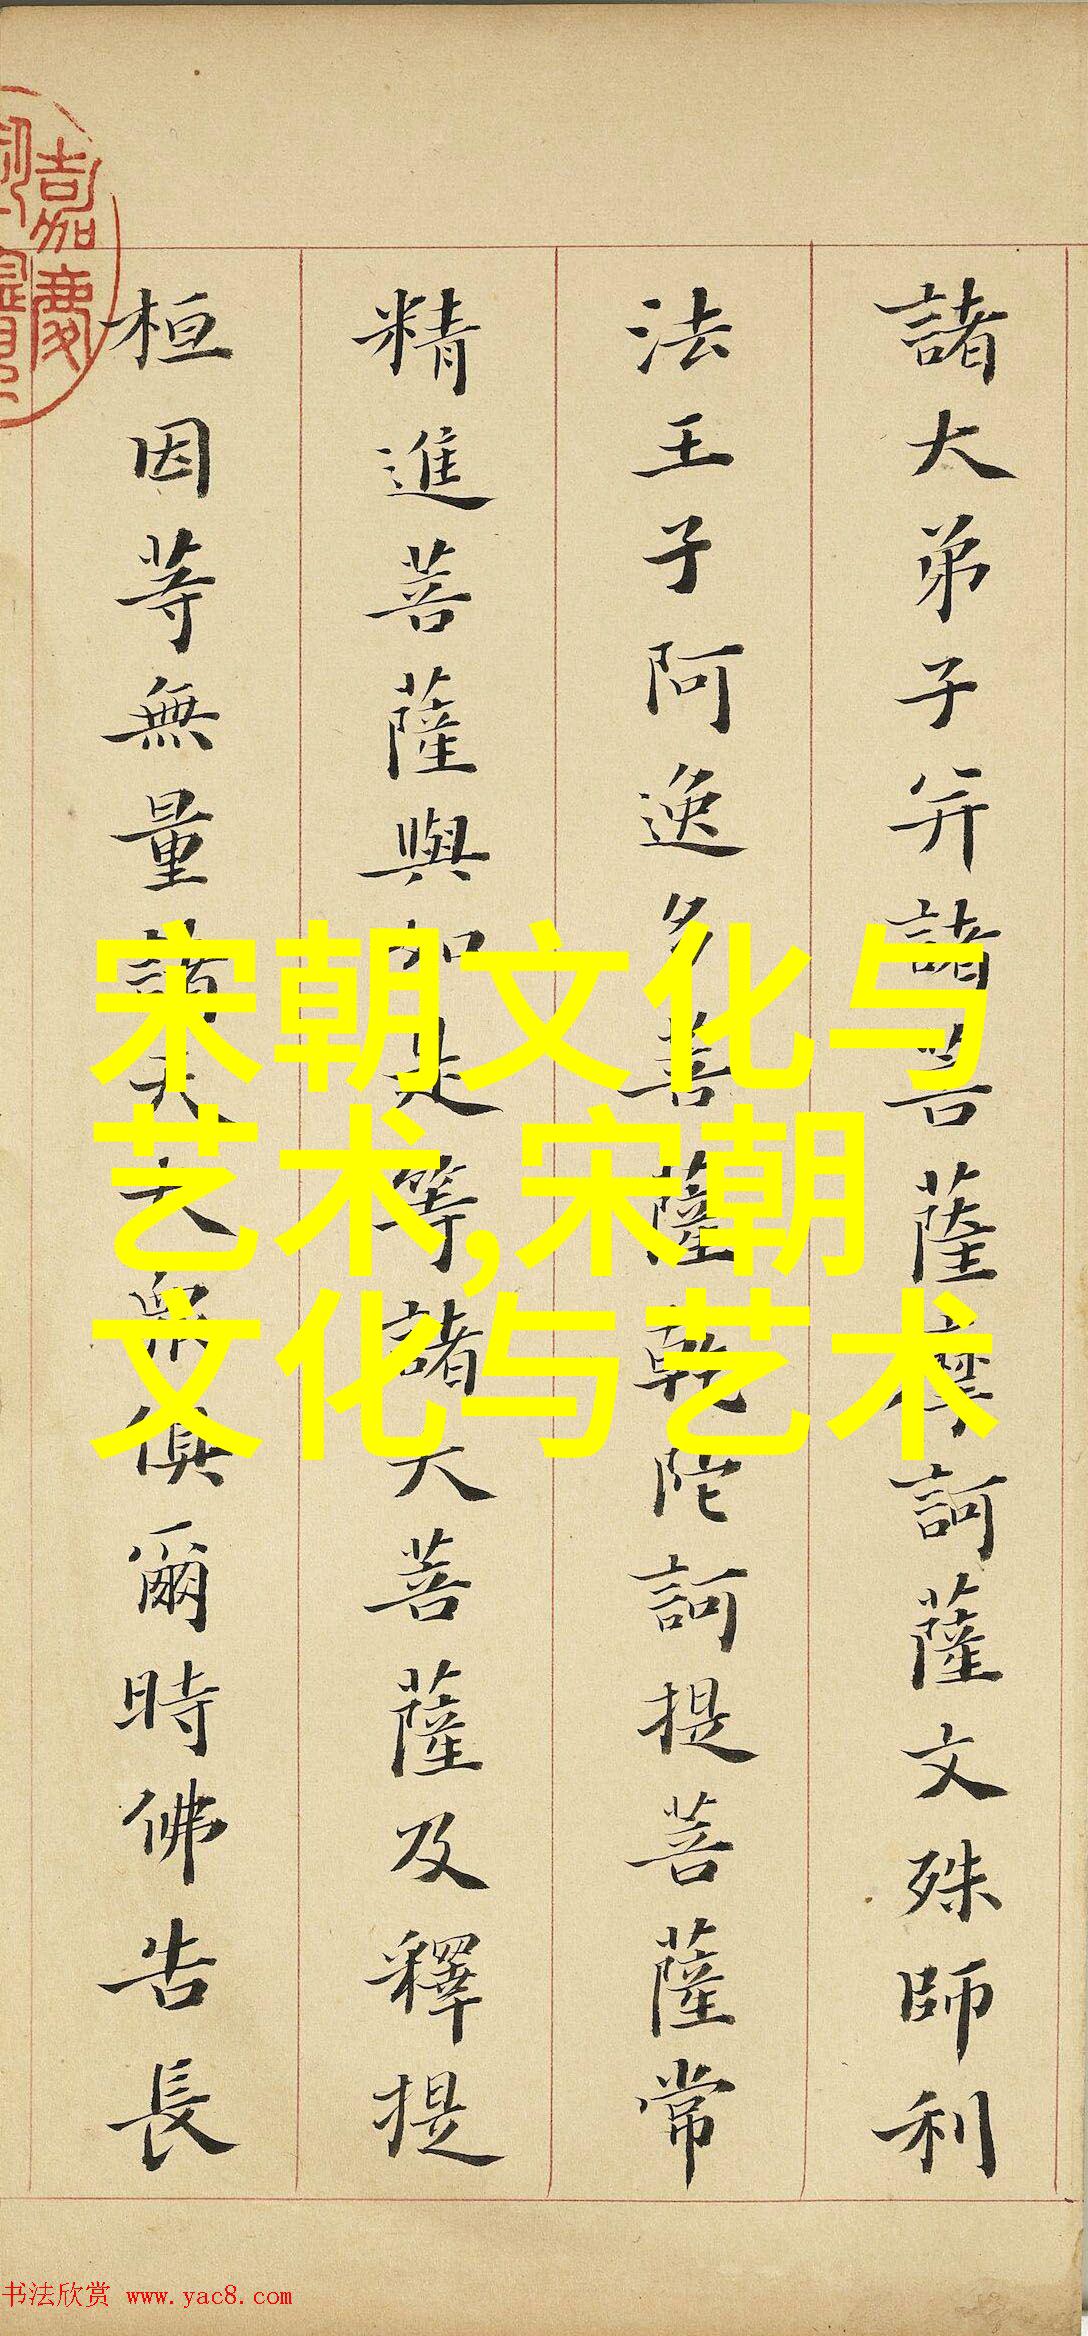 諸大弟子并諸菩薩摩訶薩文殊師利
法王子阿逸多菩薩乾陀訶提菩薩常
精進菩薩與如是等諸大菩薩及釋提
桓因等無量諸天大眾俱爾時佛告長
嘉慶
宋朝文化与
艺术,宋朝
文化与艺术
书法欣赏 www.yac8.com